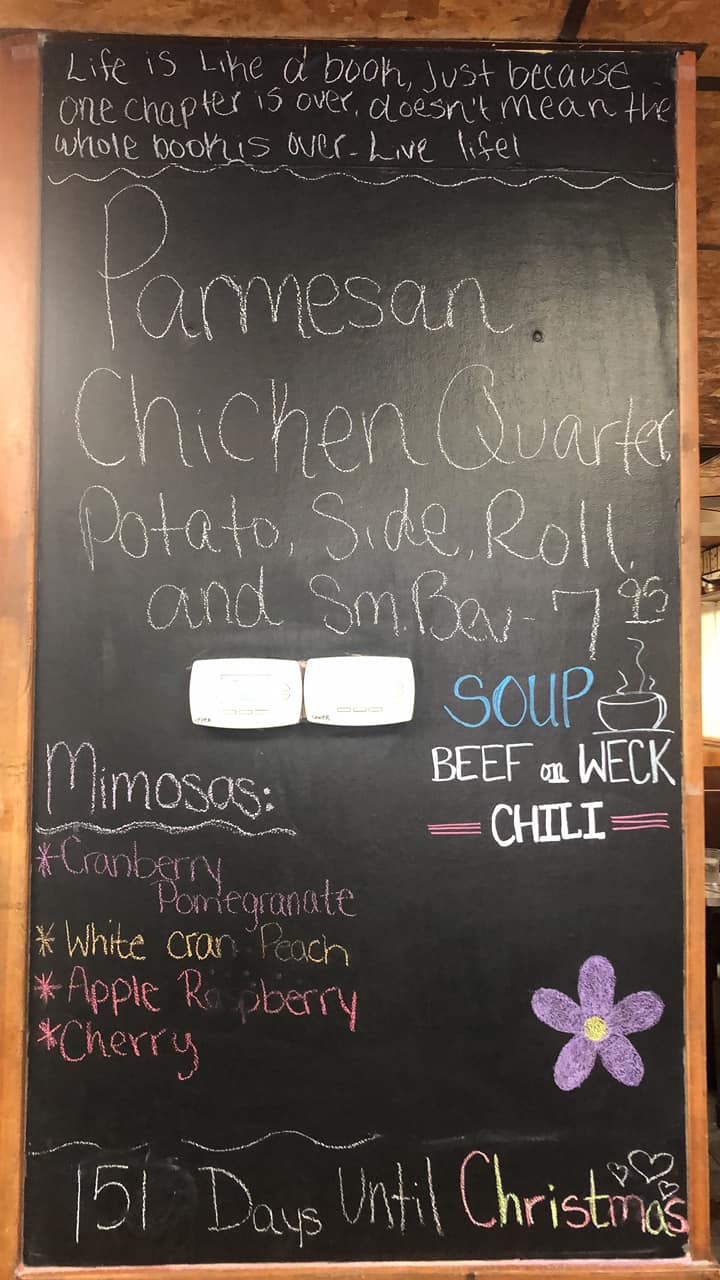 Life is Like a book, Just because
one chapter is over, doesn't mean the
whole book is over - Live life!
Parmesan
Chicken Quarter
Potato, Side, Roll,
and Sm. Bev - 7 95
UPPER LOWER
SOUP
BEEF on WECK
CHILI
Mimosas:
*Cranberry
Pomegranate
*White cran Peach
*Apple Raspberry
*Cherry
151 Days Until Christmas